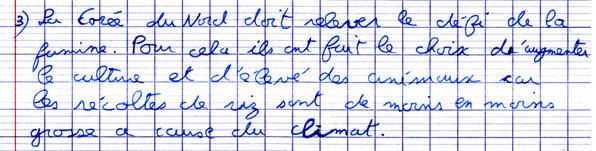 3) La Corée du Nord doit relever le défi de la
famine. Pour cela ils ont fait le choix d'augmenter
le culture et d'élevé des animaux car
les récoltes de riz sont de moins en moins
grosse a cause du climat.